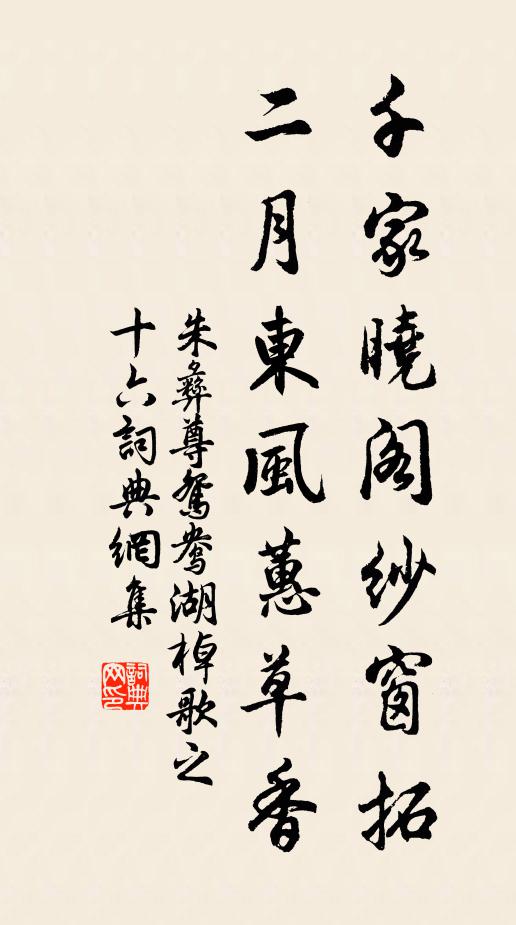 千家曉阁紗窗拓
二月東風蕙草香
朱彝尊鴛鴦湖棹歌之
十六詞典網集
詞典网印